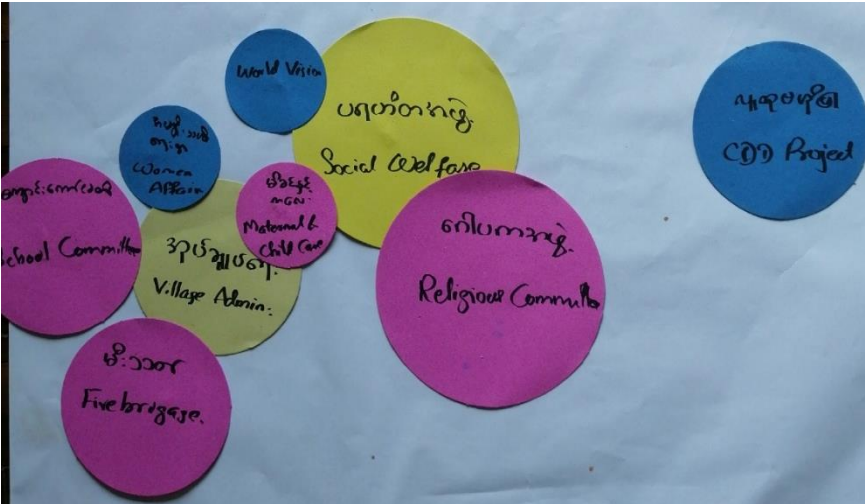 World Vision
ပရဟိတအဖွဲ့
Social Welfare
လူထုဗဟိုပြု
CDD Project
Women
Affair
မိခင်နှင့်
ကလေး
Maternal &
Child Care
School Committe
အုပ်ချုပ်ရေး
Village Admin:
ဂေါပကအဖွဲ့
Religious Committe
မီးသတ်
Fire brigase.